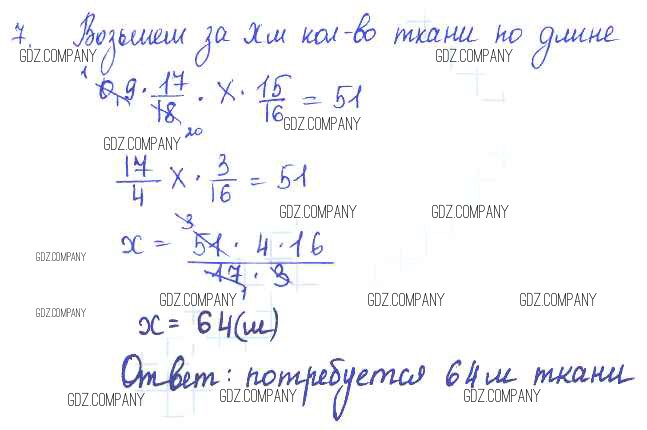 7. Возьмем за x м кол-во ткани по длине
GDZ.COMPANY GDZ.COMPANY GDZ.COMPANY
1
0,9 · 17/18 · x · 15/16 = 51
20
GDZ.COMPANY GDZ.COMPANY
17/4 x · 3/16 = 51
GDZ.COMPANY GDZ.COMPANY
3
x = 51 · 4 · 16 / 17 · 3
1
GDZ.COMPANY
GDZ.COMPANY GDZ.COMPANY GDZ.COMPANY
GDZ.COMPANY
x = 64 (м)
Ответ: потребуется 64 м ткани
GDZ.COMPANY GDZ.COMPANY GDZ.COMPANY